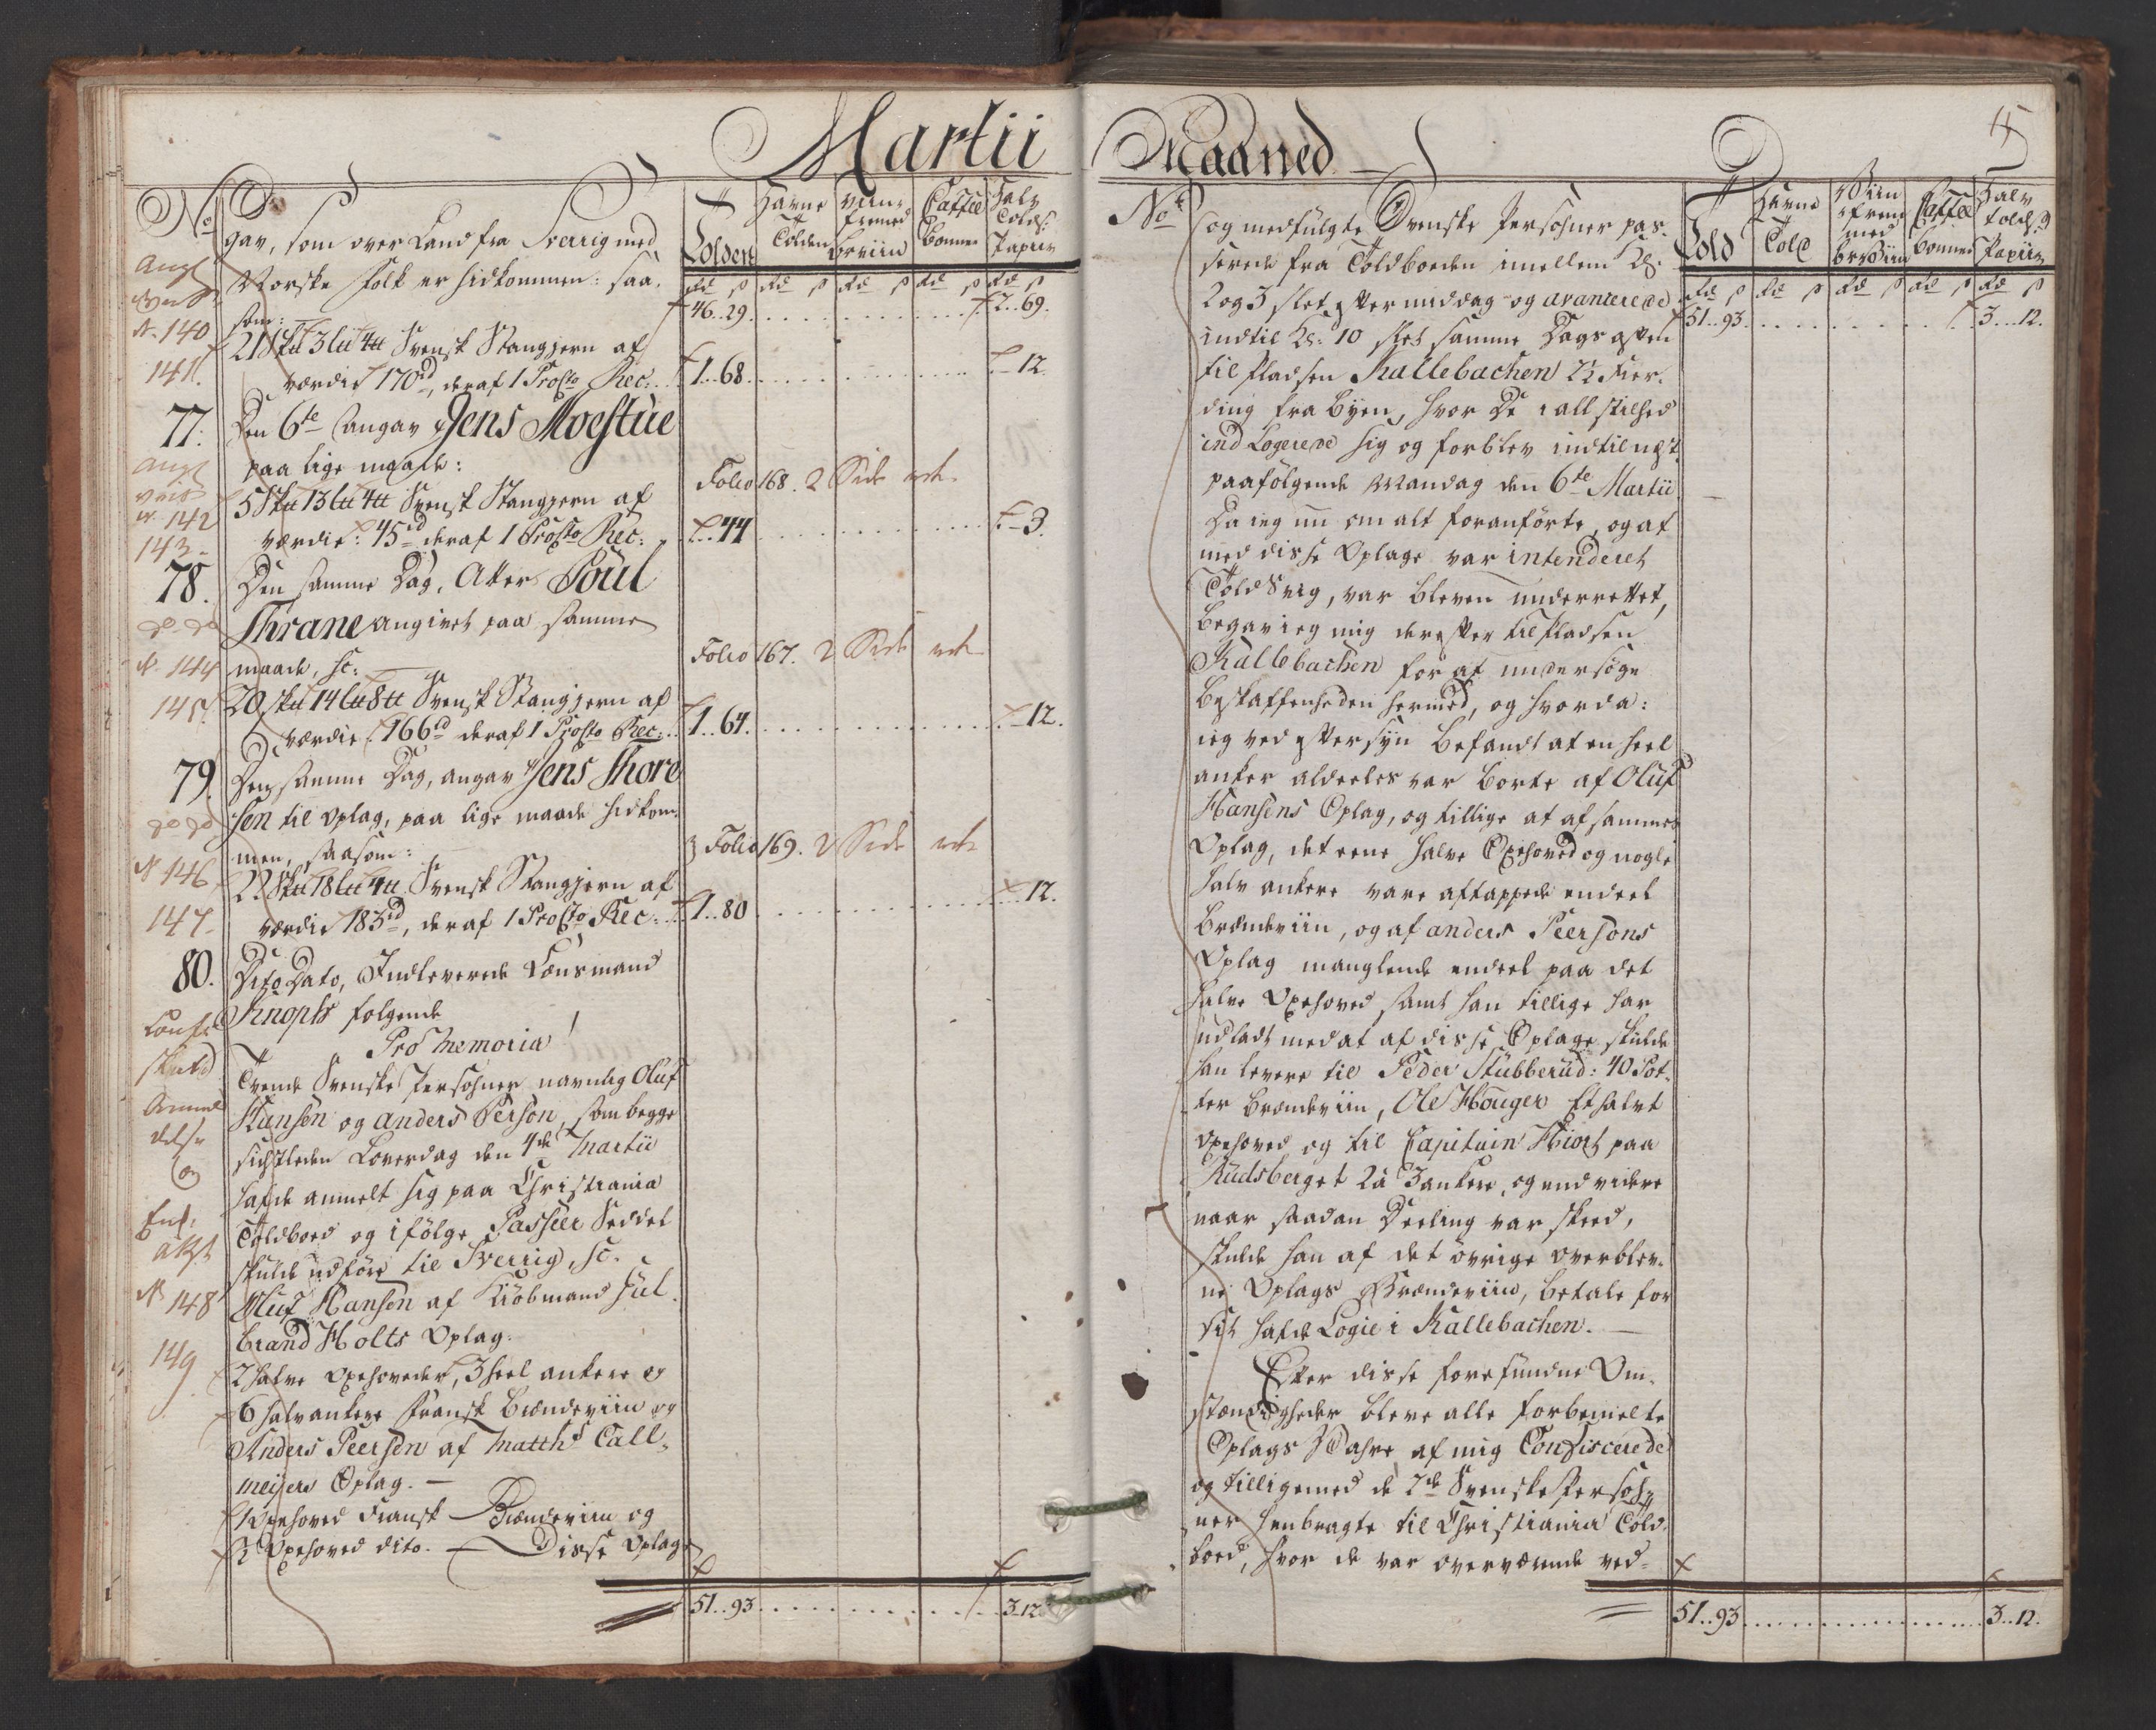 Martii
No
Tolden
Havne Tolden
Viin fremed brviin
Caffee Bonner
Halv Tolds: Papiir
rd s rd s rd s rd s rd s
gav, som over Land fra Sverrig med
Norske Folk er hidkommen: saa-
som:
46..29 2..69.
N. 140
21 Sktt 3 ltt 4 tt Svensk Stangjern af
141.
værdie 170 rd, deraf 1 Procto Rec: 1..68 -12.
77.
Den 6te angav Jens Moestue
paa lige maade:
Folio 168. 2 Side
N. 142
5 Sktt 13 ltt 4 tt Svensk Stangjern af
143.
værdie: 45 rd deraf 1 Procto Rec: ..44 -3.
78.
Den samme Dag, Atter Poul
Thrane angivet paa samme
Folio 167. 2 Side
N. 144
maade, sc:
145.
20 sktt 14 ltt 8 tt Svensk Stangjern af
værdie 166 rd deraf 1 Procto Rec: 1..64. -12.
79.
Den samme Dag, angav Jens Thore
sen til Oplag, paa lige maade hidkom-
men, saasom:
3 Folio 169. 2 Side
N 146
22 Sktt 18 ltt 4 tt Svensk Stangjern af
147.
værdie 183 rd, deraf 1 Procto Rec: 1..80 12.
80.
Dito Dato, Indleverede Lensmand
Knophs følgende
Pro Memoria!
Tvende Svenske Persohner navnlig Oluf
Hansen og Anders Person, som begge
sidstleden Loverdag den 4de Martii
hafde anmelt sig paa Christiania
Toldboed og ifølge Passeer Seddel
skulde udføre til Sverrig, sc.
N 148
Oluf Hansen af Kiøbmand Hil
brand Holts Oplag.
149
2 halve Oxehoveder, 3 heel ankere og
6 halvankere Fransk Brændeviin og
Anders Peersen af Matths Call-
meijers Oplag. —
1 Oxehoved Fransk Brændeviin og
½ Oxehoved dito. — Disse Oplage
51..93 3..12
Maaned
15
No
Told
Havne Told
Viin fremmed brviin
Caffee Bonner
Halv Tolds Papiir
rd s rd s rd s rd s rd s
og medfulgte Svenske Persohner pas-
serede fra Toldboeden imellem Kl:
2 og 3 slet Eftermiddag og avancerede
51..93 3..12.
indtil Kl: 10 slet samme Dags aften
til Pladsen Kallebachen 2½ Fier-
ding fra Byen, hvor De i all stilhed
ind Logerede sig og forblev indtil næst
paafølgende Mandag den 6te Martii
Da ieg nu om alt foranførte, og at
med disse Oplage var intenderet
Told Svig, var bleven underrettet,
Begav ieg mig derefter til Pladsen
Kallebachen for at undersøge
Beskaffenheden hermed, og hvorda:
ieg ved Eftersyn befandt at en heel
anker aldeeles var borte af Oluf
Hansens Oplag, og tillige at af sammes
Oplag, det eene halve Oxehoved og nogle
halv ankere vare aftappede endeel
Brændeviin, og af Anders Peersons
Oplag manglende endeel paa det
halve Oxehoved samt han tillige har
udladt med at af disse Oplage skulde
han levere til Peder Stubberud: 40 Pot-
ter Brændeviin, Ole Houger Et halvt
Oxehoved og til Capitain Hiort paa
Rudsberget 2 à 3 ankere, og end videre
naar saadan Deeling var skeed,
skulde han af det øvrige overblev-
ne Oplags Brændeviin, betale for
sit hafde Logie i Kallebachen. —
Efter disse forefundne Om-
stændigheder bleve alle forbemelte
Oplags Vahre af mig Confiscerede
og tilligemed de 2de Svenske Persoh-
ner henbragte til Christiania Told-
boed, hvor de var overværende ved-
51..93 3..12.